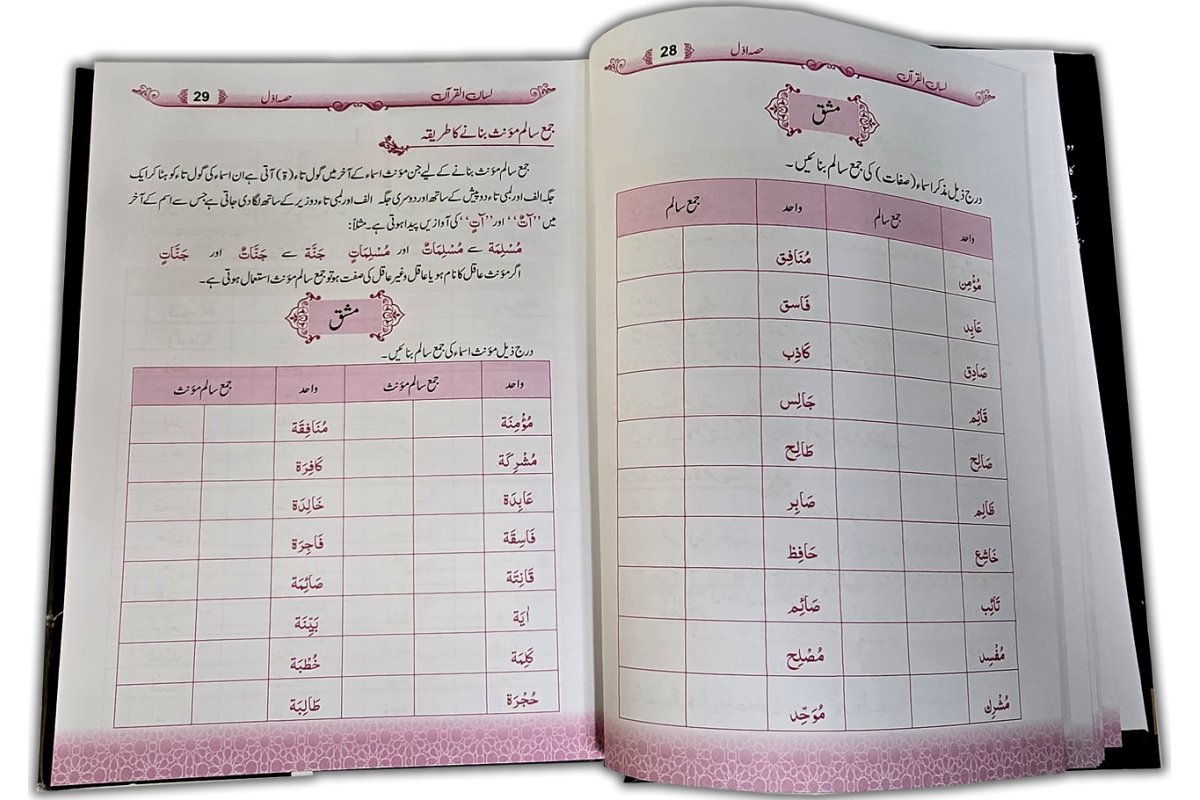 لسان القرآن حصہ اوّل 28
مشق
درج ذیل مذکر اسماء (صفات) کی جمع سالم بنائیں۔
واحد جمع سالم واحد جمع سالم
مُؤْمِن مُنَافِق
عَابِد فَاسق
صَادِق كَاذِب
قَائِم جَالِس
صَالِح طَالِح
ظَالِم صَابِر
خَاشِع حَافِظ
تَائِب صَائِم
مُفْسِد مُصْلِح
مُشْرِك مُوَحِّد
لسان القرآن حصہ اوّل 29
جمع سالم مؤنث بنانے کا طریقہ
جمع سالم مؤنث بنانے کے لیے جن مؤنث اسماء کے آخر میں گول تاء (ة) آتی ہے ان اسماء کی گول تاء کو ہٹا کر ایک
جگہ الف اور لمبی تاء دو پیش کے ساتھ اور دوسری جگہ الف اور لمبی تاء دو زیر کے ساتھ لگا دی جاتی ہے جس سے اسم کے آخر
میں ’’آتٌ‘‘ اور ’’آتٍ‘‘ کی آوازیں پیدا ہوتی ہے۔ مثلاً:
مُسْلِمَة سے مُسْلِمَاتٌ اور مُسْلِمَاتٍ جَنَّة سے جَنَّاتٌ اور جَنَّاتٍ
اگر مؤنث عاقل کا نام ہو یا عاقل وغیر عاقل کی صفت ہو تو جمع سالم مؤنث استعمال ہوتی ہے۔
مشق
درج ذیل مؤنث اسماء کی جمع سالم بنائیں۔
واحد جمع سالم مؤنث واحد جمع سالم مؤنث
مُؤْمِنَة مُنَافِقَة
مُشْرِكَة كَافِرَة
عَابِدَة خَالِدَة
فَاسِقَة فَاجِرَة
قَانِتَة صَائِمَة
اٰيَة بَيِّنَة
كَلِمَة خُطْبَة
حُجْرَة طَالِبَة